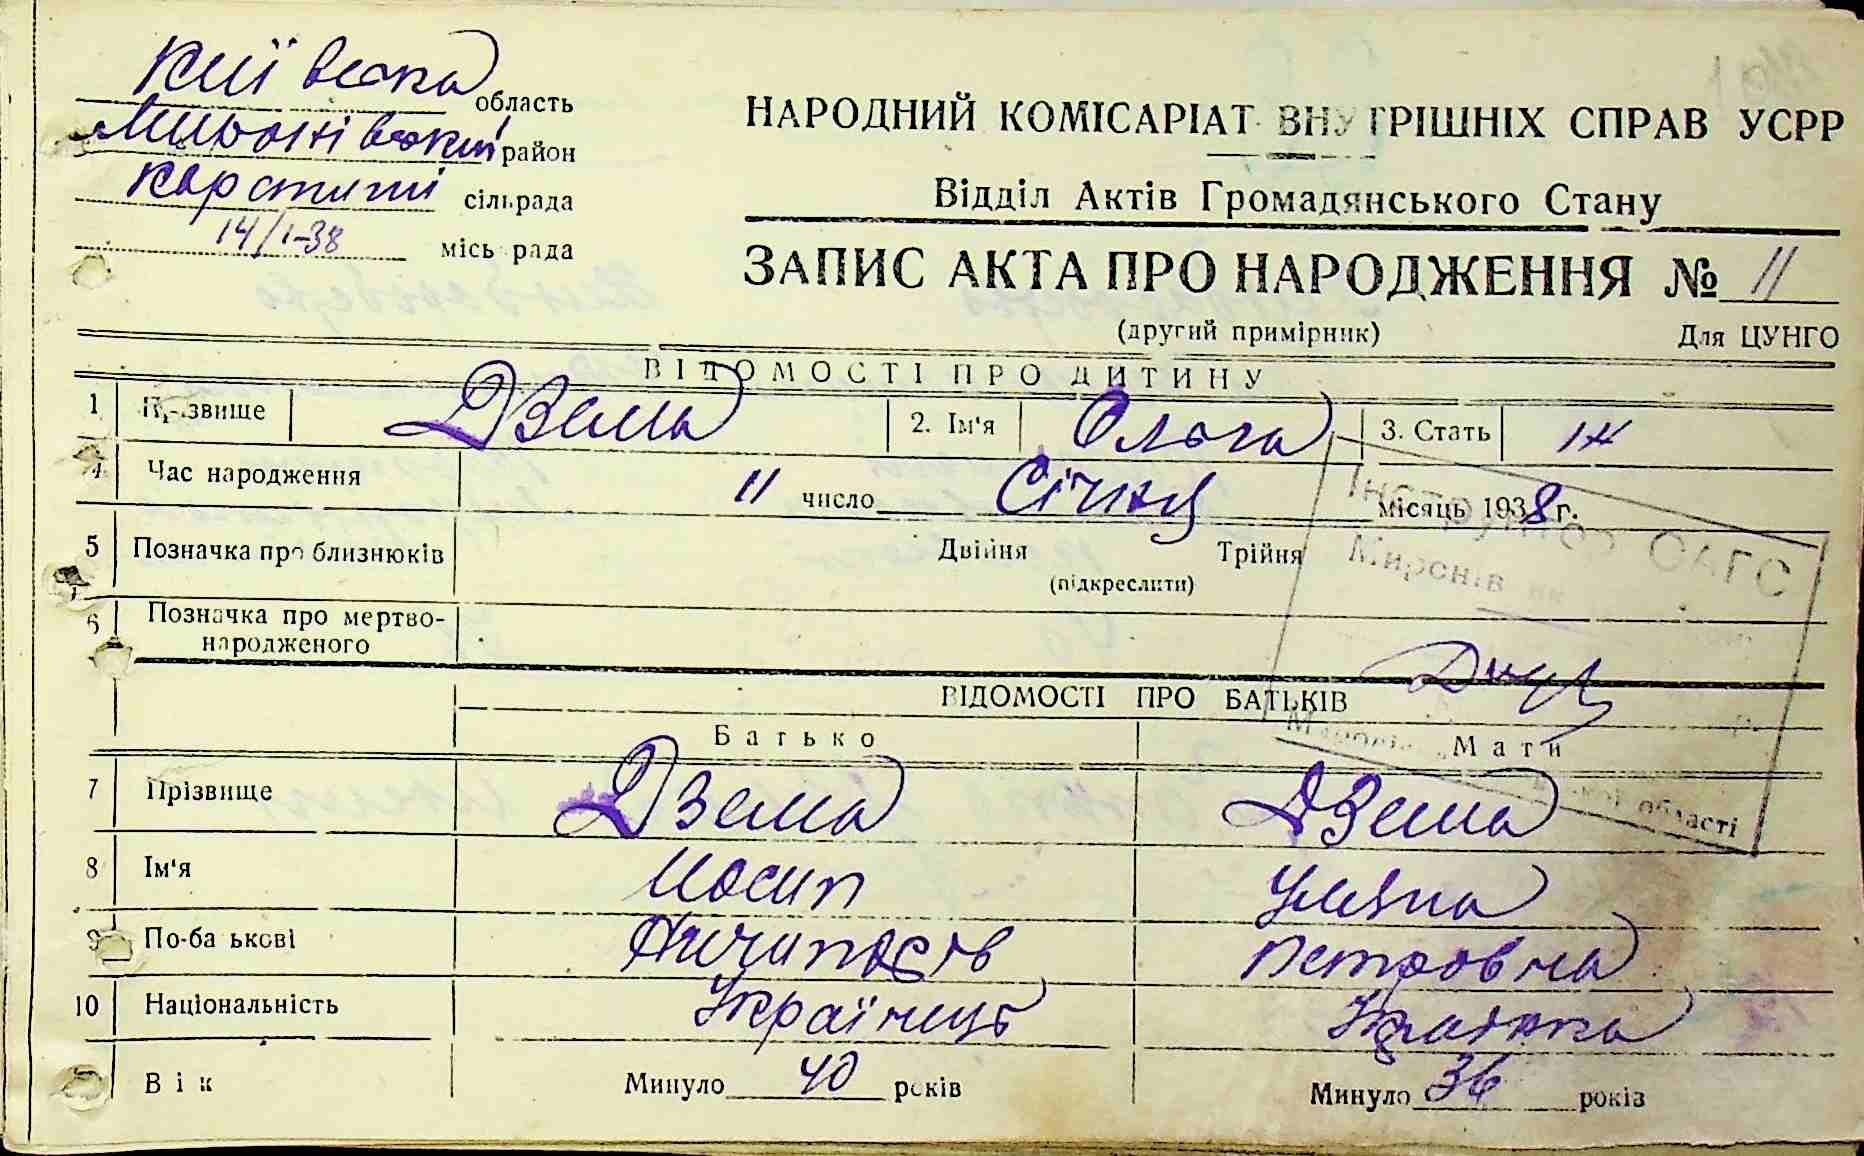 Київська область
Миронівський район
Карапиші сільрада
14/I-38 місь рада
НАРОДНИЙ КОМІСАРІАТ ВНУТРІШНІХ СПРАВ УСРР
Відділ Актів Громадянського Стану
ЗАПИС АКТА ПРО НАРОДЖЕННЯ № 11
(другий примірник) Для ЦУНГО
ВІДОМОСТІ ПРО ДИТИНУ
1 Прізвище Дзема 2. Ім'я Ольга 3. Стать Ж
4 Час народження 11 число Січня місяць 1938 г.
5 Позначка про близнюків Двійня Трійня
(підкреслити)
6 Позначка про мертво-
народженого
Інструктор ОАГС
Миронів
області
ВІДОМОСТІ ПРО БАТЬКІВ
Батько Мати
7 Прізвище Дзема Дзема
8 Ім'я Йосип Уляна
9 По-ба ькові Ничипорів Петровна
10 Національність Українець Українка
Вік Минуло 40 років Минуло 36 років